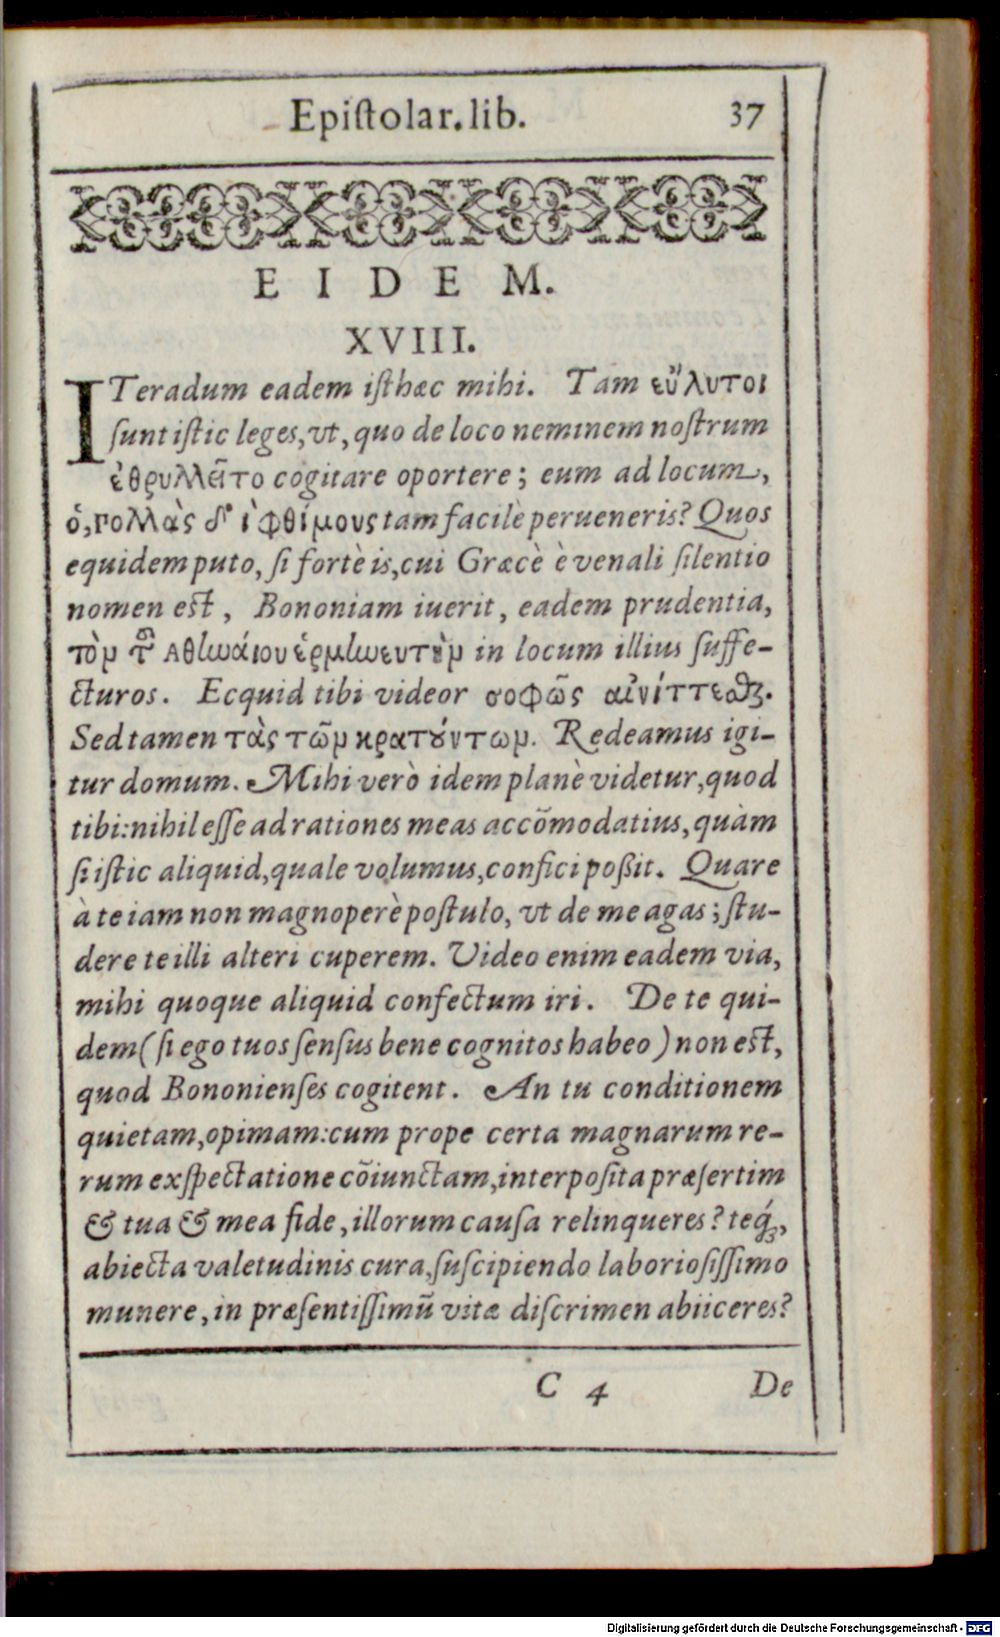 Epiſtolar. lib. 37
EIDEM.
XVIII.
ITeradum eadem iſthæc mihi. Tam εὔλυτοι
ſunt iſtic leges, vt, quo de loco neminem noſtrum
ἐθρυλλεῖτο cogitare oportere; eum ad locum,
ὁ, πολλὰς δ' ἰφθίμους tam facilè perueneris? Quos
equidem puto, ſi fortè is, cui Græcè è venali ſilentio
nomen eſt, Bononiam iuerit, eadem prudentia,
τὸν τ͂ Αθηναίου ἑρμηνευτὴν in locum illius ſuffe-
cturos. Ecquid tibi videor σοφῶς αἰνίττεσθαι.
Sed tamen τὰς τῶν κρατούντων. Redeamus igi-
tur domum. Mihi verò idem planè videtur, quod
tibi: nihil eſſe ad rationes meas accõmodatius, quàm
ſi iſtic aliquid, quale volumus, confici poßit. Quare
à te iam non magnoperè poſtulo, vt de me agas; ſtu-
dere te illi alteri cuperem. Video enim eadem via,
mihi quoque aliquid confectum iri. De te qui-
dem (ſi ego tuos ſenſus bene cognitos habeo) non eſt,
quod Bononienſes cogitent. An tu conditionem
quietam, opimam: cum prope certa magnarum re-
rum exſpectatione cõiunctam, interpoſita præſertim
& tua & mea fide, illorum cauſa relinqueres? teq́;,
abiecta valetudinis cura, ſuſcipiendo laborioſiſſimo
munere, in præſentiſſimũ vitæ diſcrimen abiiceres?
C 4 De
Digitalisierung gefördert durch die Deutsche Forschungsgemeinschaft - DFG